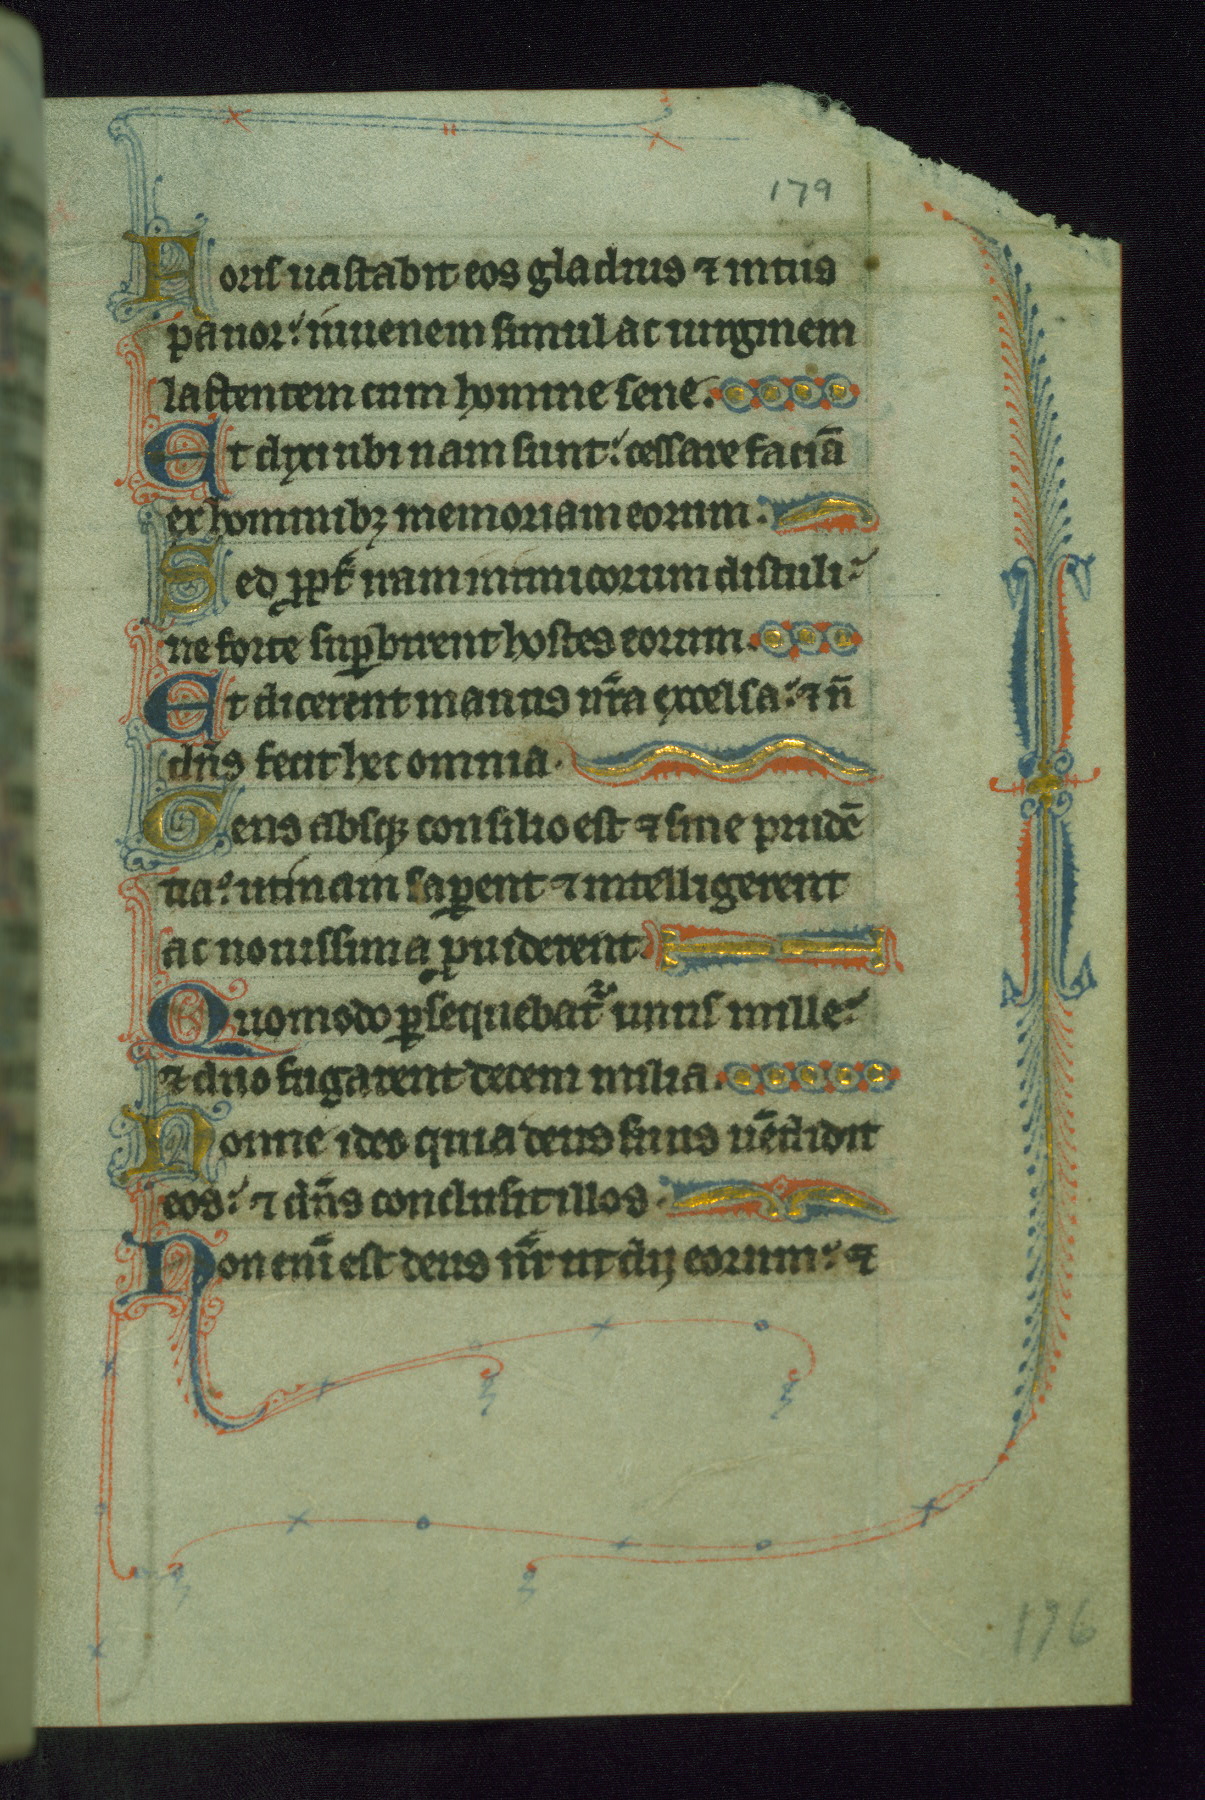 179
Foris uastabit eos gladius ⁊ intus
pauor: iuuenem simul ac uirginem
lactentem cum homine sene.
Et dixi ubi nam sunt: cessare faciā
ex hominibꝫ memoriam eorum.
Sed ꝓpt̄ iram inimicorum distuli:
ne forte suꝑbirent hostes eorum.
Et dicerent manus nr̄a excelsa: ⁊ n̄
dn̄s fecit hec omnia.
Gens absqꝫ consilio est ⁊ sine prudē
tia: utinam saꝑent ⁊ intelligerent
ac nouissima ꝓuiderent
Quomodo ꝑsequebat᷑ unus mille:
⁊ duo fugarent decem milia.
Nonne ideo quia deus suus uēdidit
eos: ⁊ dn̄s conclusit illos.
Non eni̅ est deus nr̄ ut dij eorum: ⁊
196